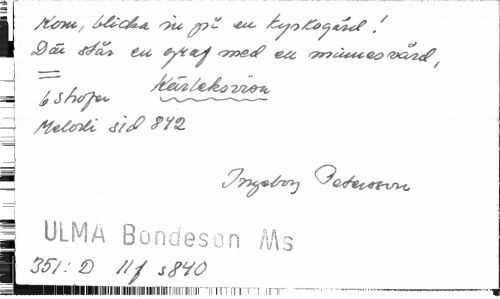 Kom, blicka in på en kyrkogård!
Där står en graf med en minnesvård,
6 strofer Kärleksvisa
Melodi sid 842
Ingeborg Petersson
ULMA Bondeson Ms
351: D 11f s840